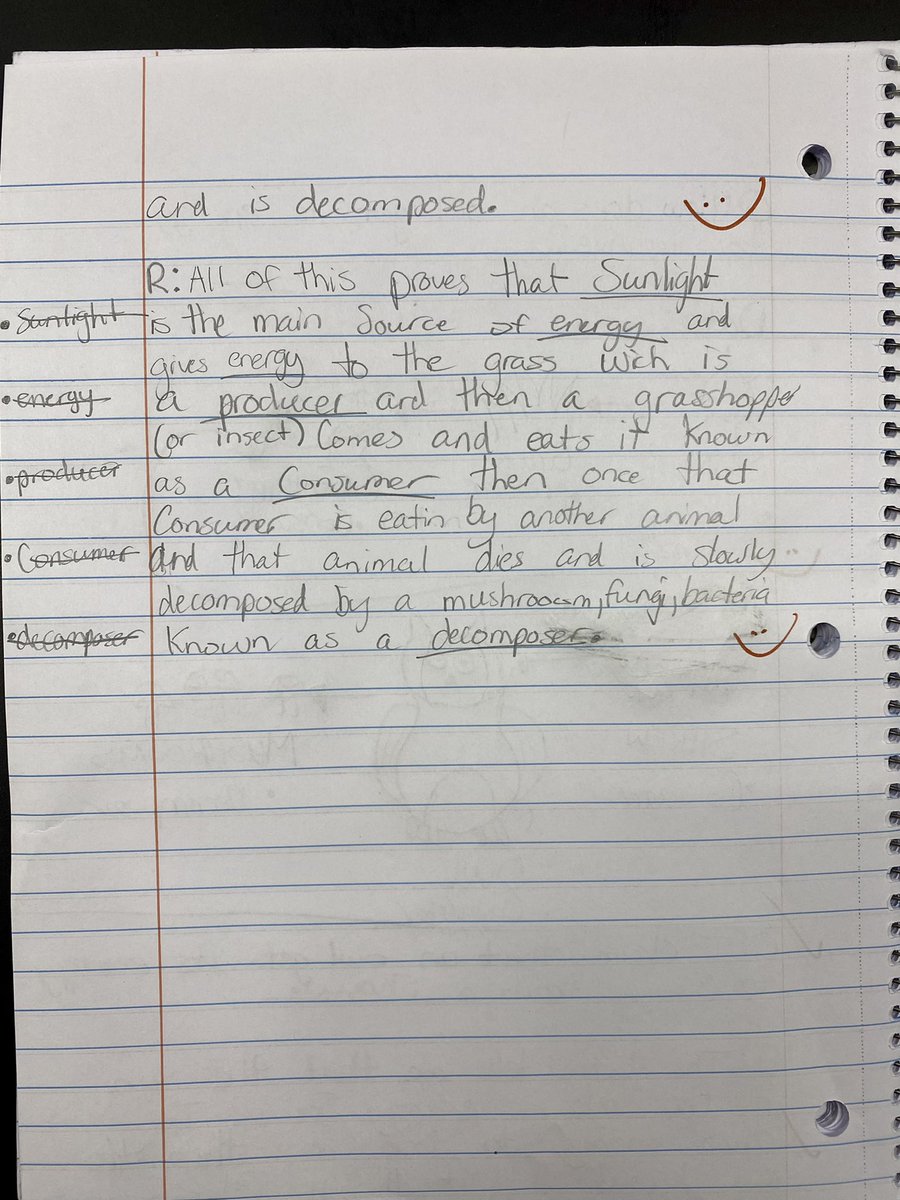 and is decomposed.
R: All of this proves that Sunlight
• Sunlight is the main Source of energy and
gives energy to the grass wich is
• energy a producer and then a grasshopper
(or insect) Comes and eats it Known
• producer as a Consumer then once that
Consumer is eatin by another animal
• Consumer And that animal dies and is slowly
decomposed by a mushrooom, fungi, bacteria
• decomposer Known as a decomposer.